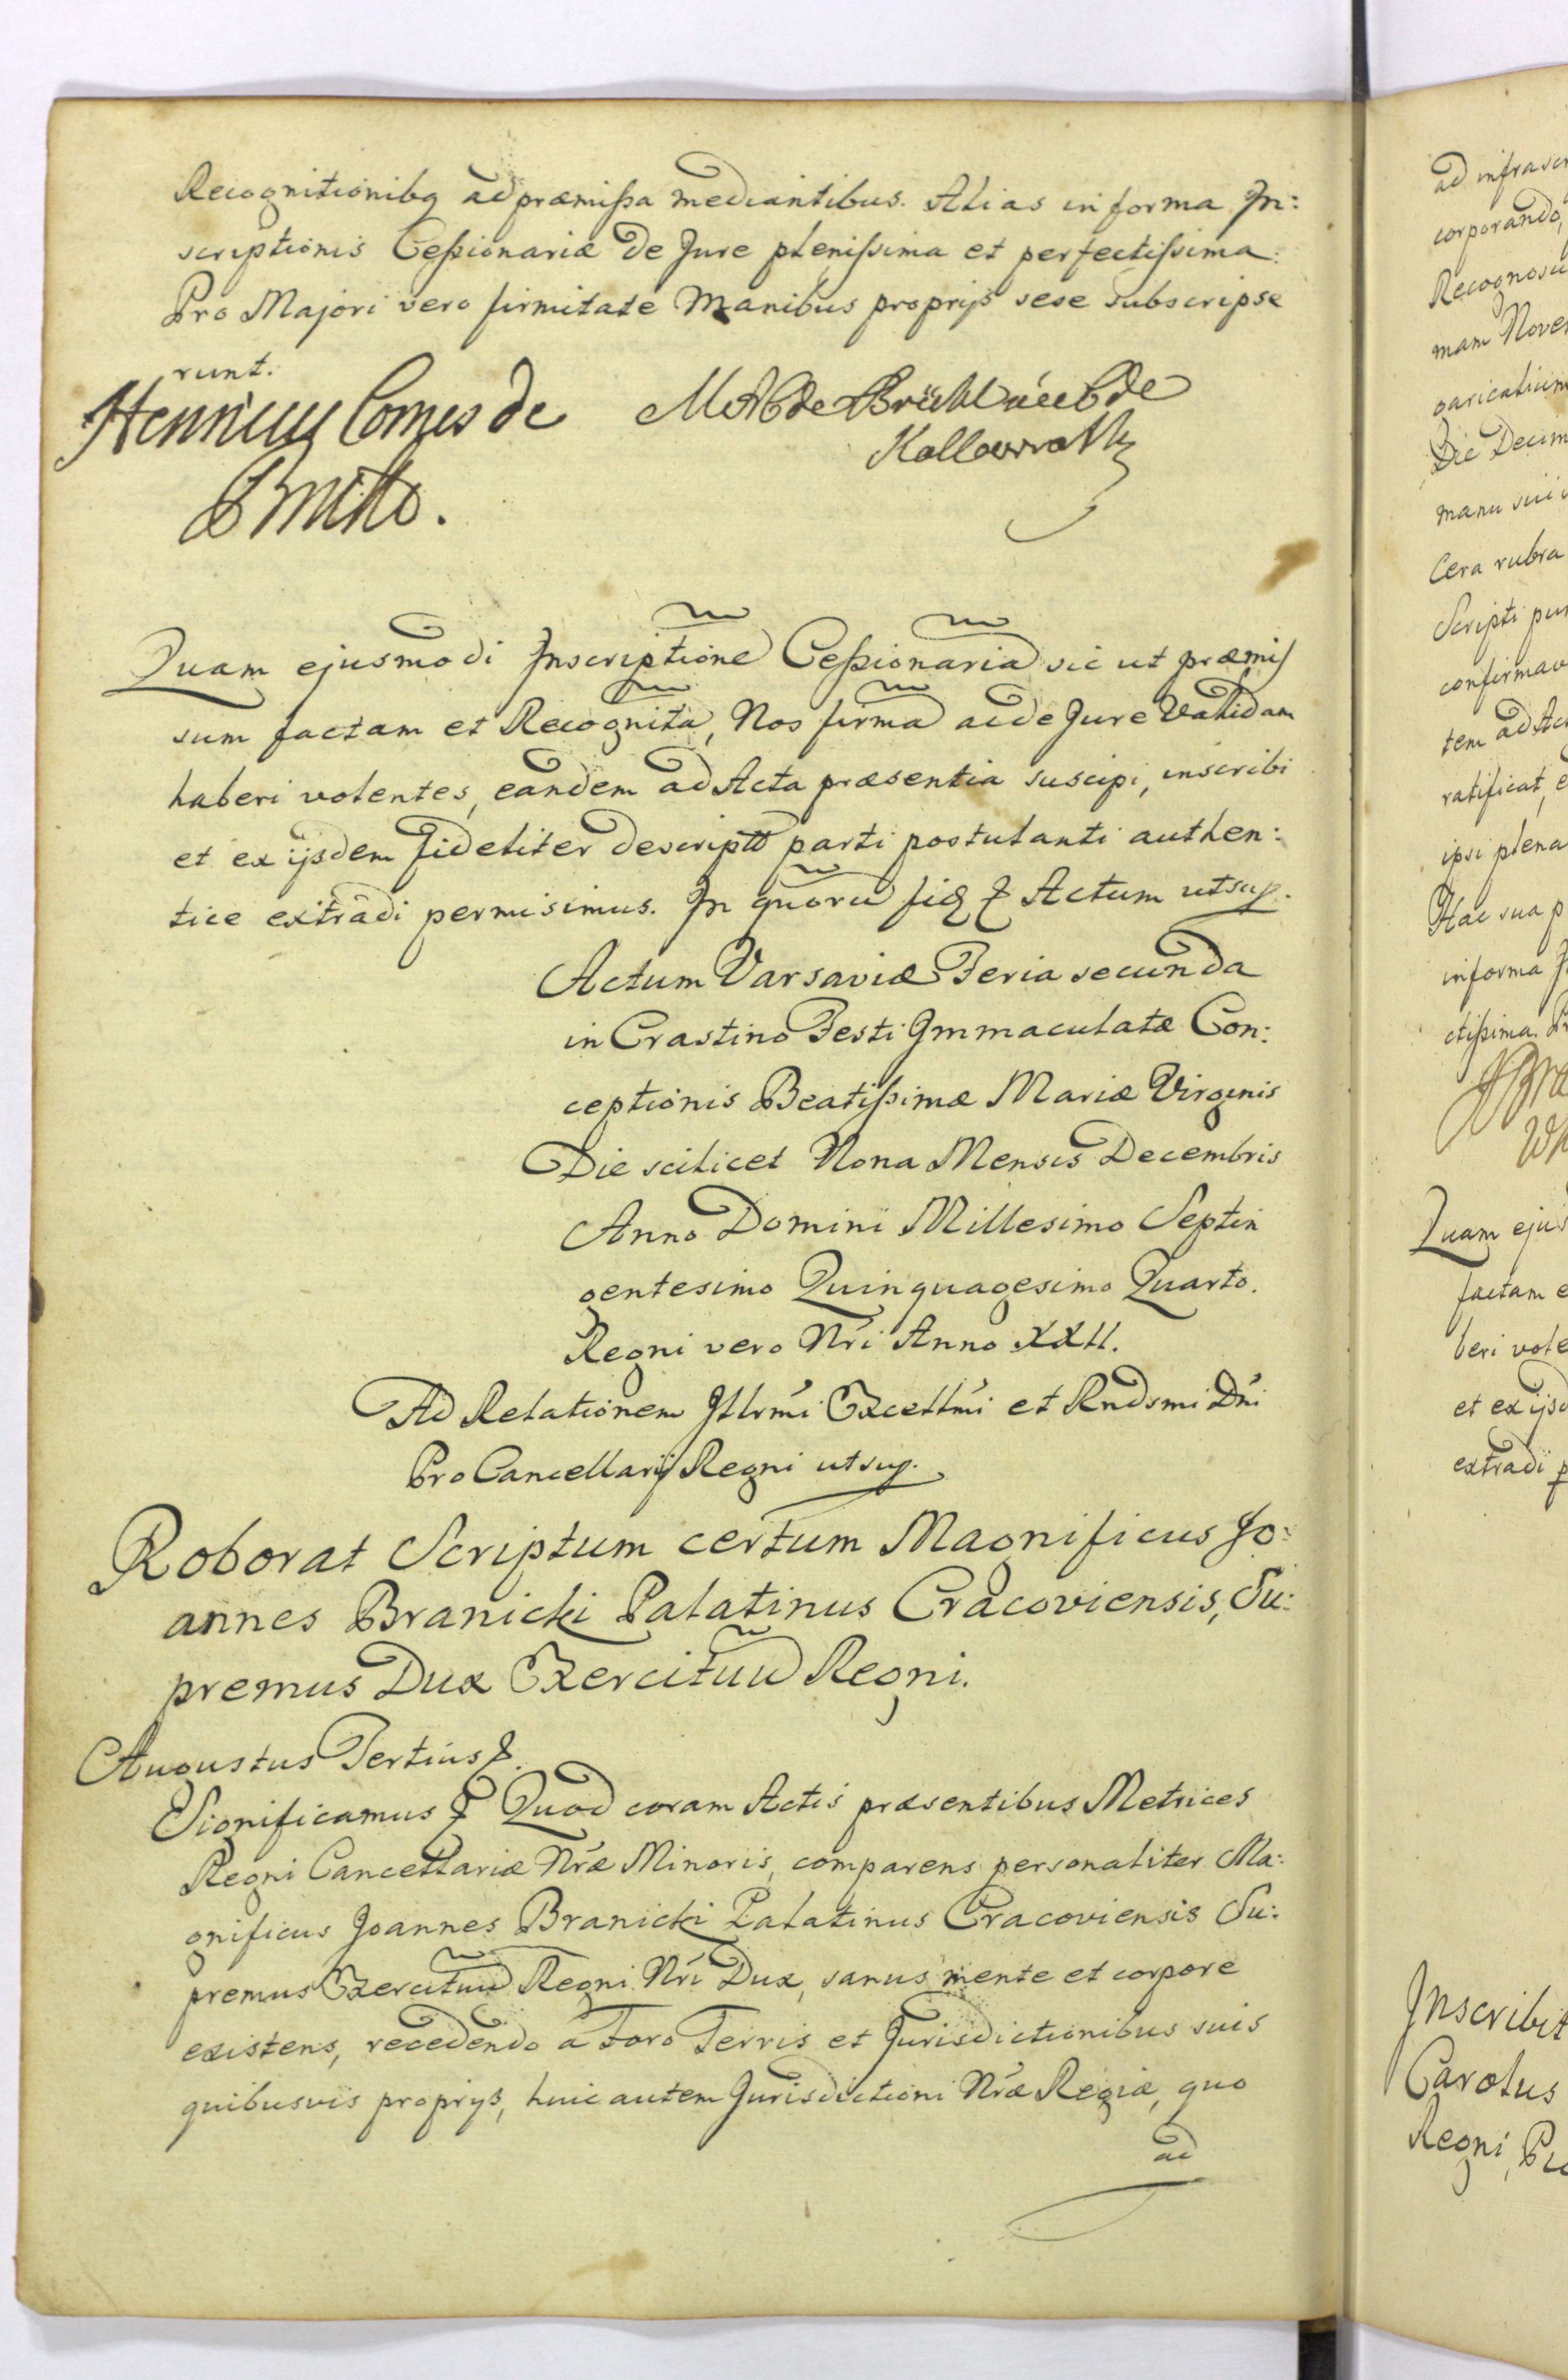 Recognitionibq ad præmissa mediantibus. Alias in forma In:
scriptionis Cessionariæ de Jure plenissima et perfectissima.
Pro Majori vero firmitate Manibus proprijs sese subscripse
runt.
Henricus Comes de
Bruhl.
M A C de Brühl née C de
Kollowrath
Quam ejusmodi Inscriptione Cessionaria sic ut præmis
sum factam et Recognita, Nos firma ac de Jure Validam
haberi volentes, eandem ad Acta præsentia suscipi, inscribi
et ex ijsdem fideliter descriptã parti postulanti authen:
tice extradi permisimus. In quoru fid & Actum ut sup.
Actum Varsaviæ Feria secunda
in Crastino Festi Immaculatæ Con:
ceptionis Beatissimæ Mariæ Virginis
Die scilicet Nona Mensis Decembris
Anno Domini Millesimo Septin
gentesimo Quinquagesimo Quarto.
Regni vero Nri Anno XXII.
Ad Relationem Illrmi Excellmi et Rndsmi Dni
Pro Cancellarij Regni ut sup.
Roborat Scriptum certum Magnificus Jo:
annes Branicki Palatinus Cracoviensis, Su:
premus Dux Exercituũ Regni.
Augustus Tertius &.
Significamus & Quod coram Actis præsentibus Metrices
Regni Cancellariæ Nræ Minoris, comparens personaliter Ma:
gnificus Joannes Branicki Palatinus Cracoviensis Su:
premus Exercituũ Regni Nri Dux, sanus mente et corpore
existens, recedendo a Foro Terris et Jurisdictionibus suis
quibusvis proprijs, huic autem Jurisdictioni Nræ Regiæ, quo
ad
ad infrascr
corporando,
Recognosci
mam Nove
Die Decim
manu sui
Cera rubra
Scripti
confirmav
tem ad Act
ratificat, e
ipsi plena
Hac sua p
in forma
ctissima. Pr
Quam ejus
factam e
beri vole
et ex ijsd
extradi p
Inscribit
Carolus
Regni,